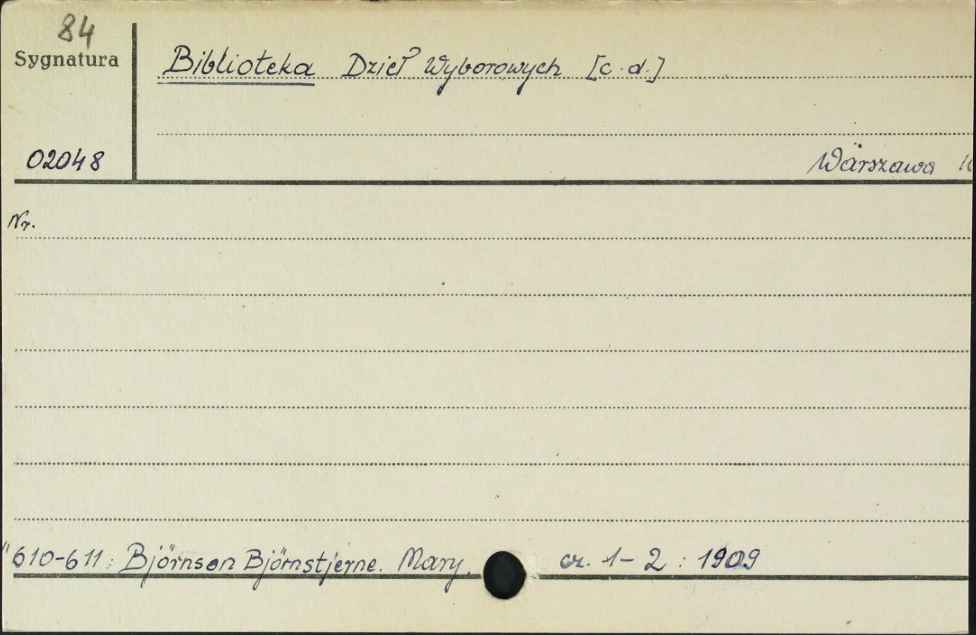 84
Sygnatura
Biblioteka Dzieł Wyborowych [c.d.]
02048
Wärszawa
Nr.
"610-611: Björnson Björnstjerne. Mary. cz. 1-2 : 1909